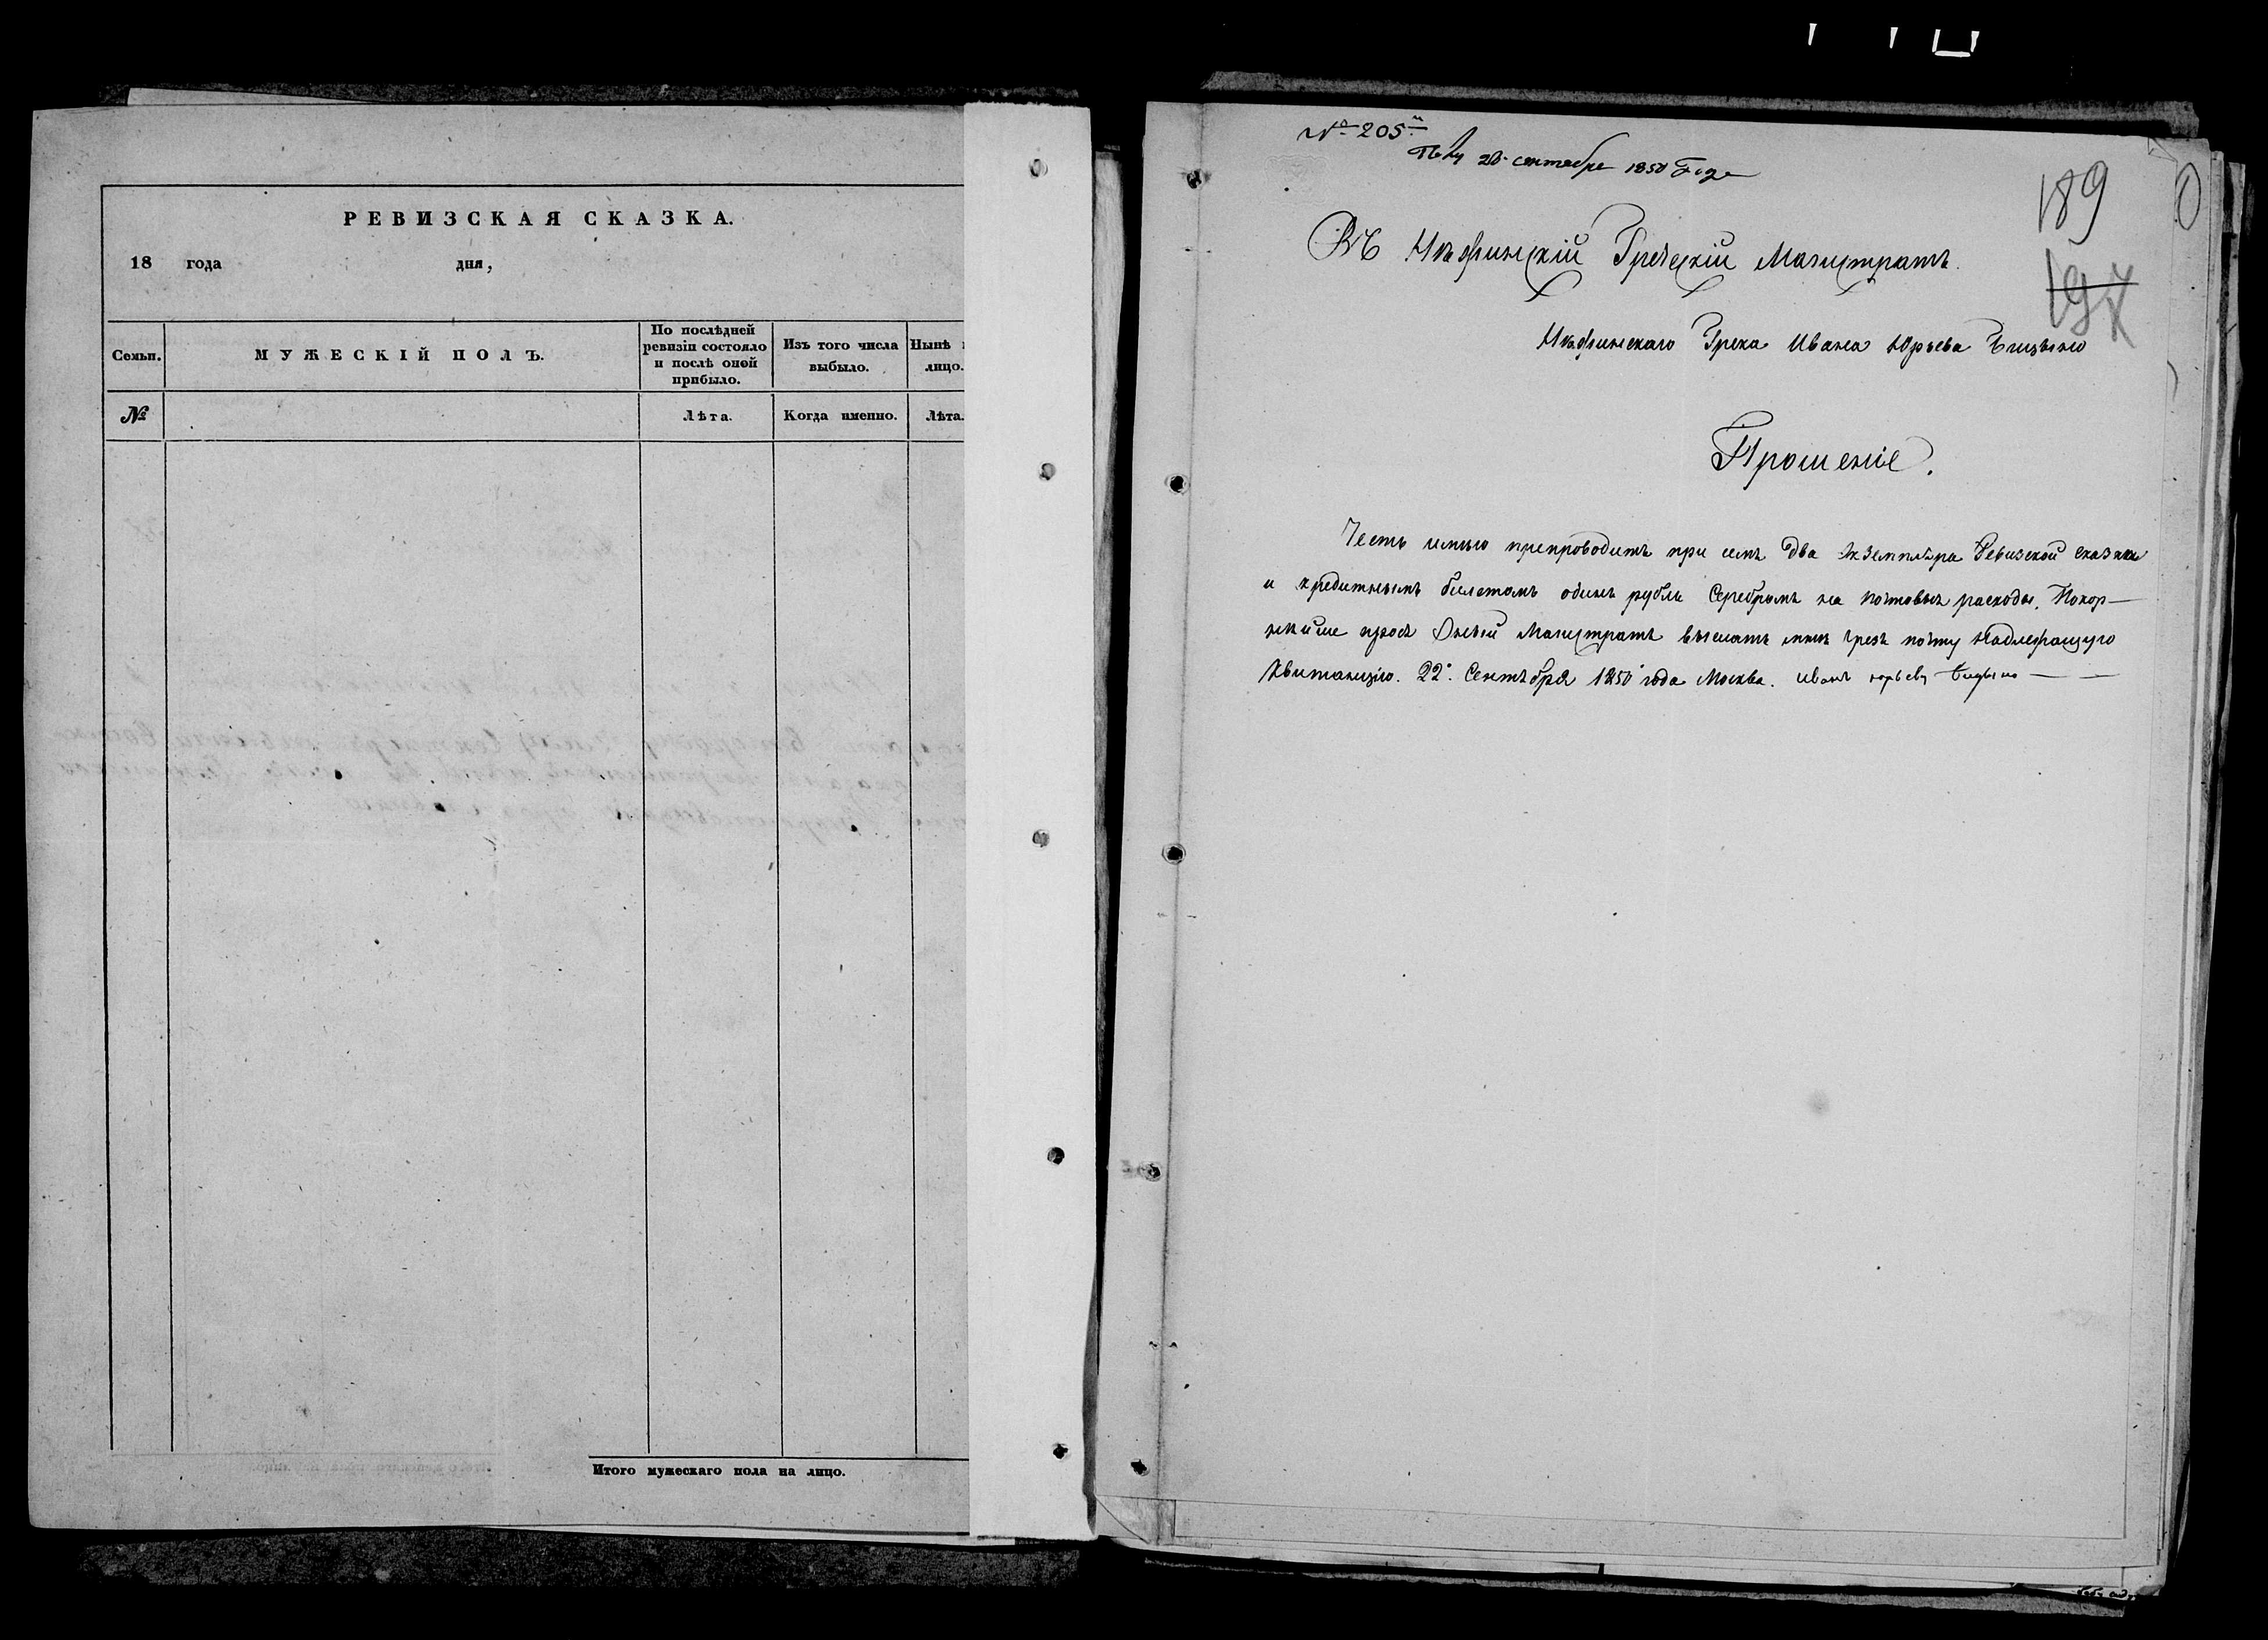 РЕВИЗСКАЯ СКАЗКА.
18 года дня,
Семьи.
МУЖЕСКІЙ ПОЛЪ.
По послѣдней ревизіи состояло и послѣ оной прибыло.
Изъ того числа выбыло.
Нынѣ
лицо.
№
Лѣта.
Когда именно.
Лѣта.
Итого мужескаго пола на лицо.
№ 205
сентебре 1850 Года
189
Въ Нѣжинскій Греческій Магистратъ.
Нѣжинскаго Грека Ивана Юрьева
Прошеніе.
Честь имѣю препроводить при семъ два экземпляра Ревизской сказки
и кредитнымъ билетомъ одинъ рубль Серебромъ на почтовыя расходы. Покор-
нѣйше прося Оный Магистратъ выслать мнѣ чрезъ почту Надлежащую
Квитанцію. 22. Сентебря 1850 года Москва. Иванъ Юрьевъ